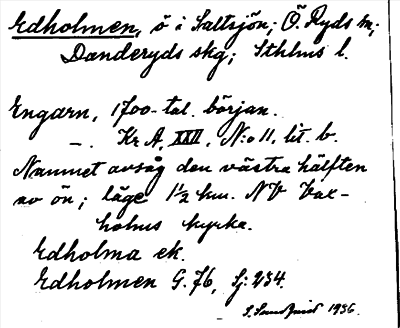 Edholmen, ö i Saltsjön; Ö. Ryds sn;
Danderyds skg; Sthlms l.
Engarn, 1700-tal. början.
—. Kr A, XXII, N:o 11, lit. b.
Namnet avsåg den västra hälften
av ön; läge 1½ km. NV Vax-
holms kyrka.
Edholma ek.
Edholmen G. 76, Sj: 234.
1936.